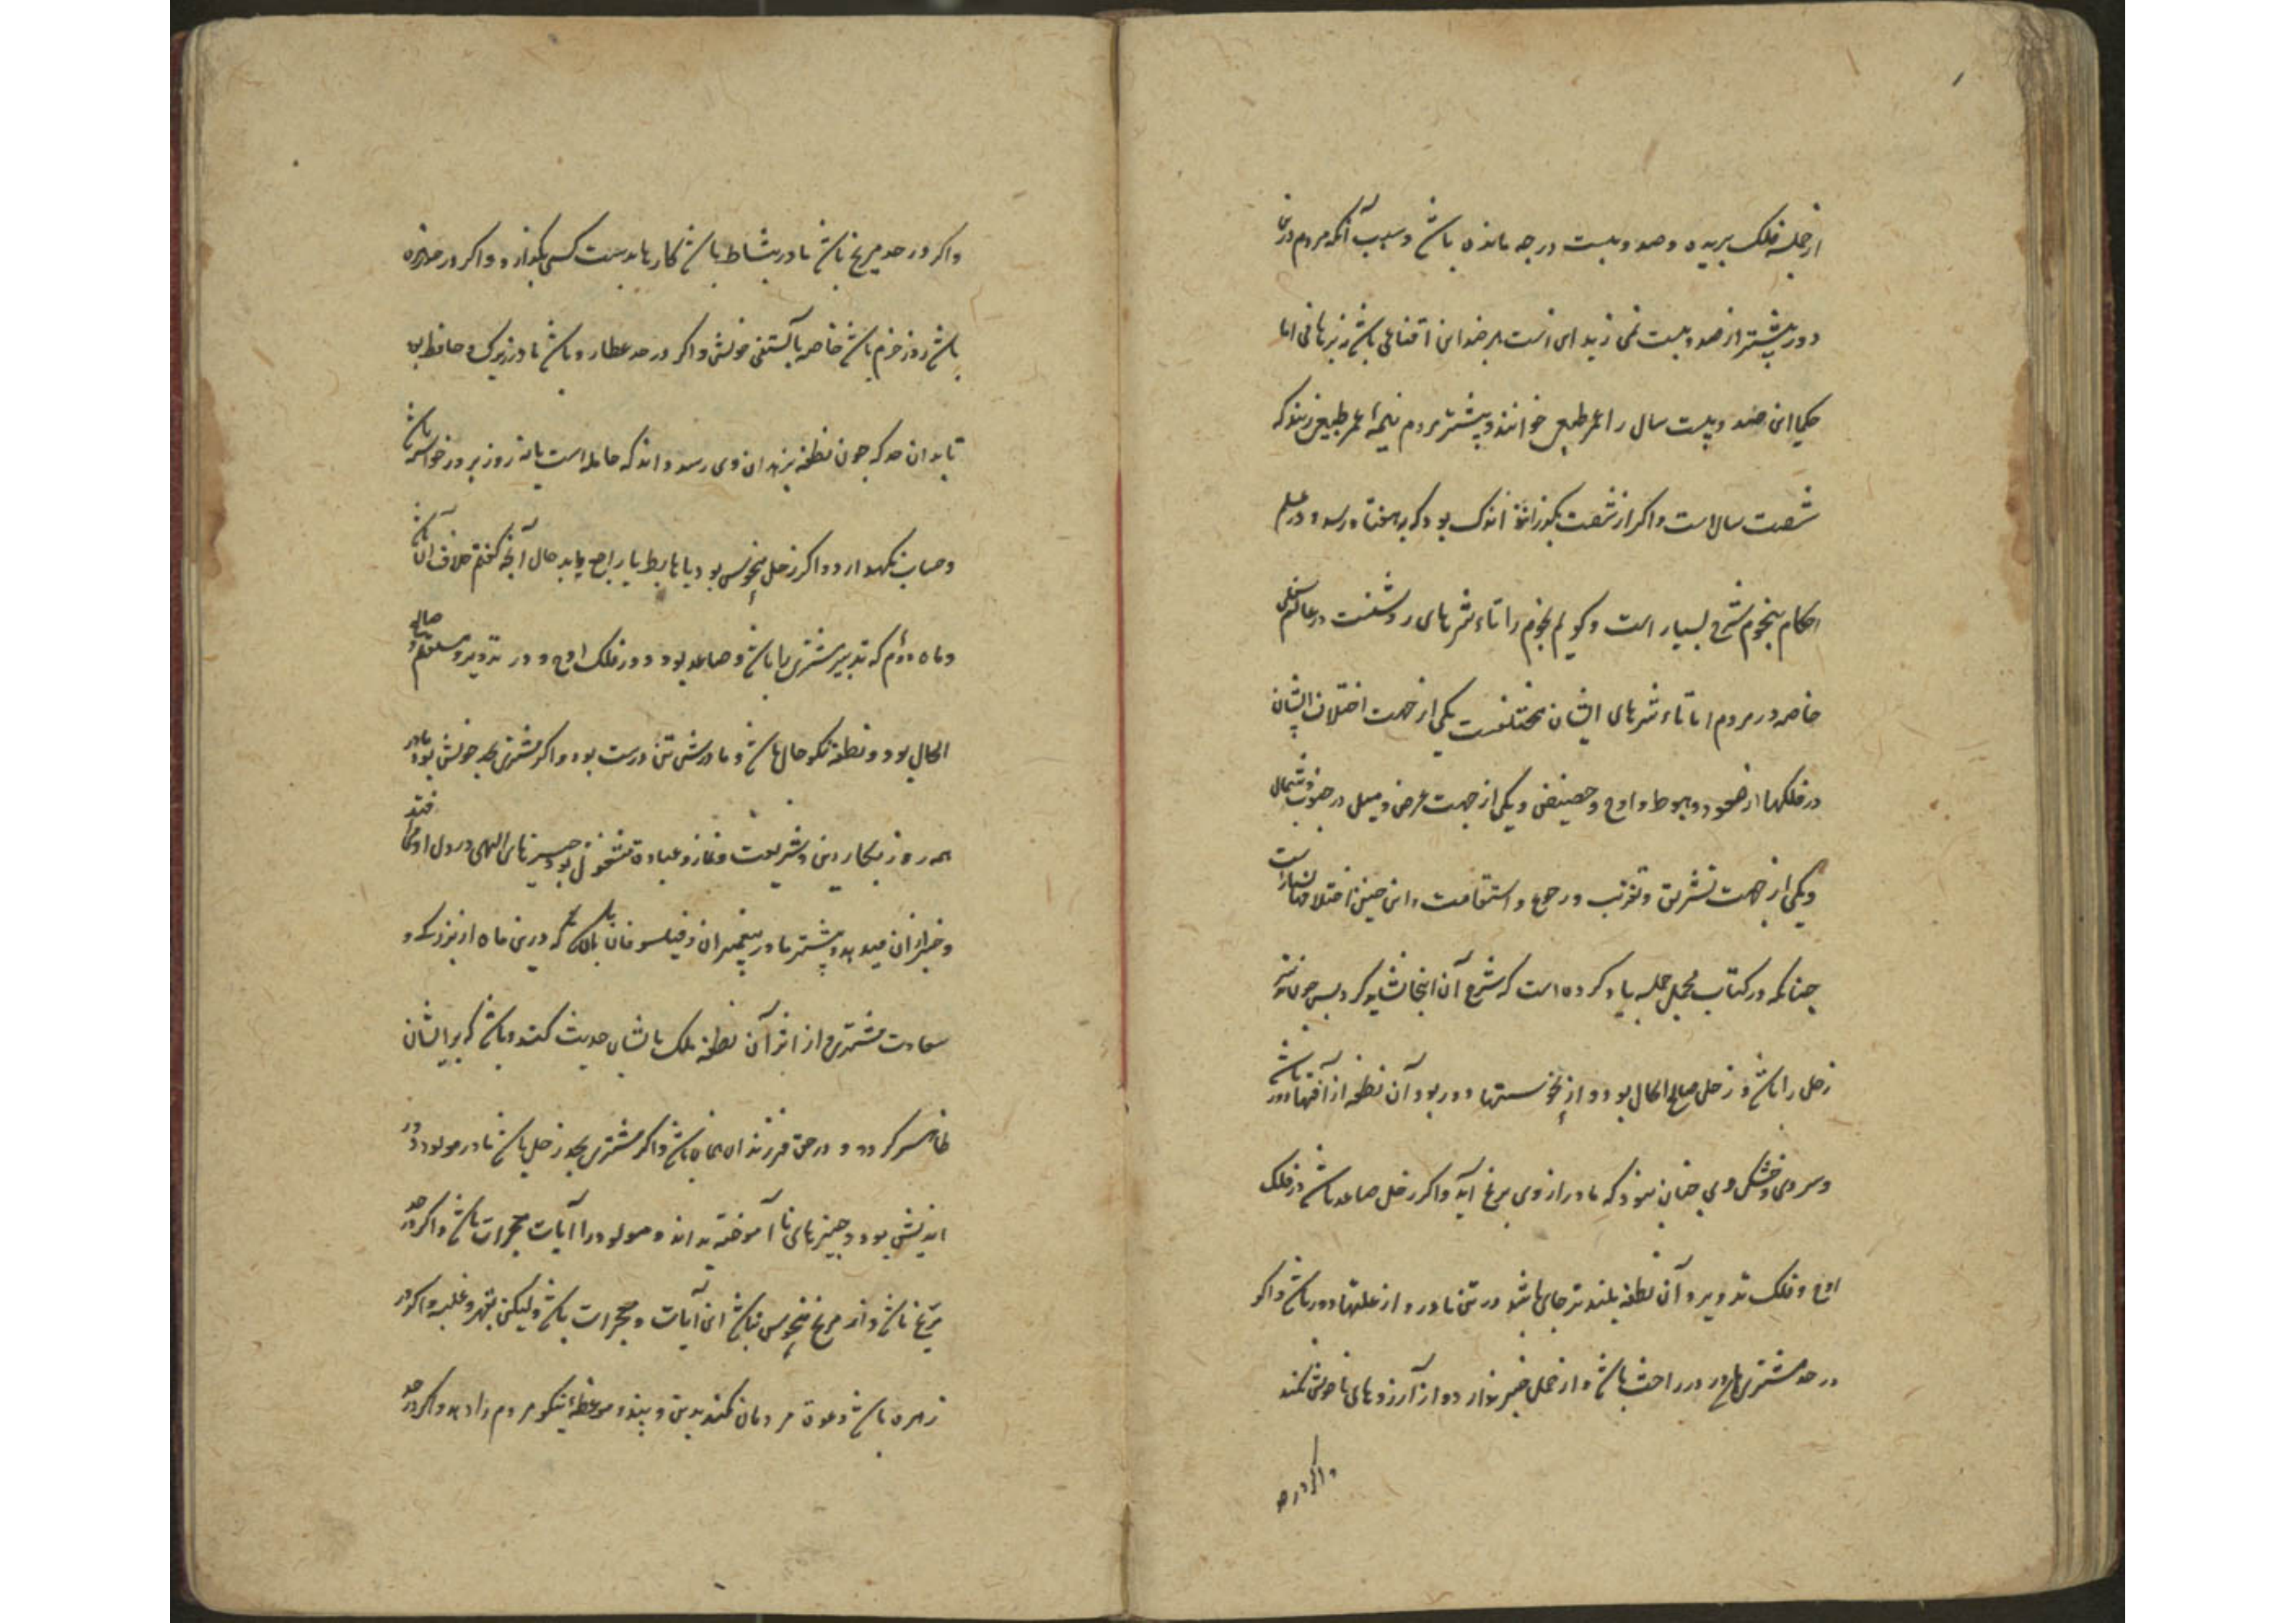 از جمله فلک بریده و صد و بیست درجه مانده باشد و سبب آنکه مردم درین
دور بیشتر از صد و بیست نمی زید این است هر چند این اقناعی باشد نه برهانی اما
حکما این صد و بیست سال را عمر طبیعی خوانند و بیشتر مردم نیمه عمر طبیعی زیند که
شصت سال است و اگر از شصت بگذرانند اندک بود که به هفتاد رسد و در علم
احکام نجوم شرح بسیار است و گویم نجوم را تاءثیرهای روشنست در عالم سفلی
خاصه در مردم اما تاءثیرهای ایشان مختلفست یکی از جهت اختلاف ایشان
در فلکها از صعود و هبوط و اوج و حضیض و یکی از جهت عرض و میل در جنوب و شمال
و یکی از جهت تشریق و تغریب و رجوع و استقامت و این جنین اختلافها بسیار است
جنانکه در کتاب مجمل جمله یاد کرده است که شرح آن اینجا نشاید کرد بس جون نوبت
زحل را باشد و زحل صالح الحال بود و از نحوستها دور بود آن نطفه از آفتها دور باشد
و سردی و خشکی وی جنان نبود که مادر از وی برنج آید و اگر زحل صاعد باشد در فلک
اوج و فلک تدویر و آن نطفه بلند تر جای باشد در تن مادر و از علتها دور باشد و اگر
در حد مشتری بود مادر در راحت باشد و از حمل خبر ندارد و از آرزوهای ناخوش نکند
و اگر در حد
و اگر در حد مریخ باشد مادر بنشاط باشد کارها بدست کسی نگذارد و اگر در حد زهره
باشد روز خرم باشد خاصه بآبستنی خویش و اگر در حد عطارد باشد مادر زیرک و حافظ بود
تا بدان حد که جون نطفه بزهدان وی رسد داند که حامله است یا نه روز بروز خواستار باشد
و حساب نگهدارد و اگر زحل منحوس بود یا هابط یا راجع باید حال آنجه گفتم خلاف آن باشد
و ماه دوم که تدبیر مشتری را باشد و صاعد بود در فلک اوج و در تدویر و مستقیم و صالح
الحال بود و نطفه نکو حال باشد و مادرش تن درست بود و اگر مشتری بحد خویش بود مادر
همه روز بکار دین و شریعت و نماز و عبادة مشغول بود و جیزهای الهی در دل او می افتد
و خبر از آن میدهد و بیشتر مادر پیغمبران و فیلسوفان باشد که درین ماه از بزرگی و
سعادت مشتری و از اثر آن نطفه ملک با ایشان حدیث کند و باشد که بر ایشان
ظاهر گردد و در حق فرزند آن همان باشد و اگر مشتری بحد زحل باشد مادر مولود دور
اندیش بود و جیزهای نا آموخته بداند و مولود را آیات و معجزات باشد و اگر در حد
مریخ باشد و از مریخ منحوس نباشد این آیات و معجزات باشد ولیکن بقهر و غلبه و اگر در
زهره باشد دعوة مردمان کند بدین و پند و موعظه نیکو مردم را دهد و اگر در حد